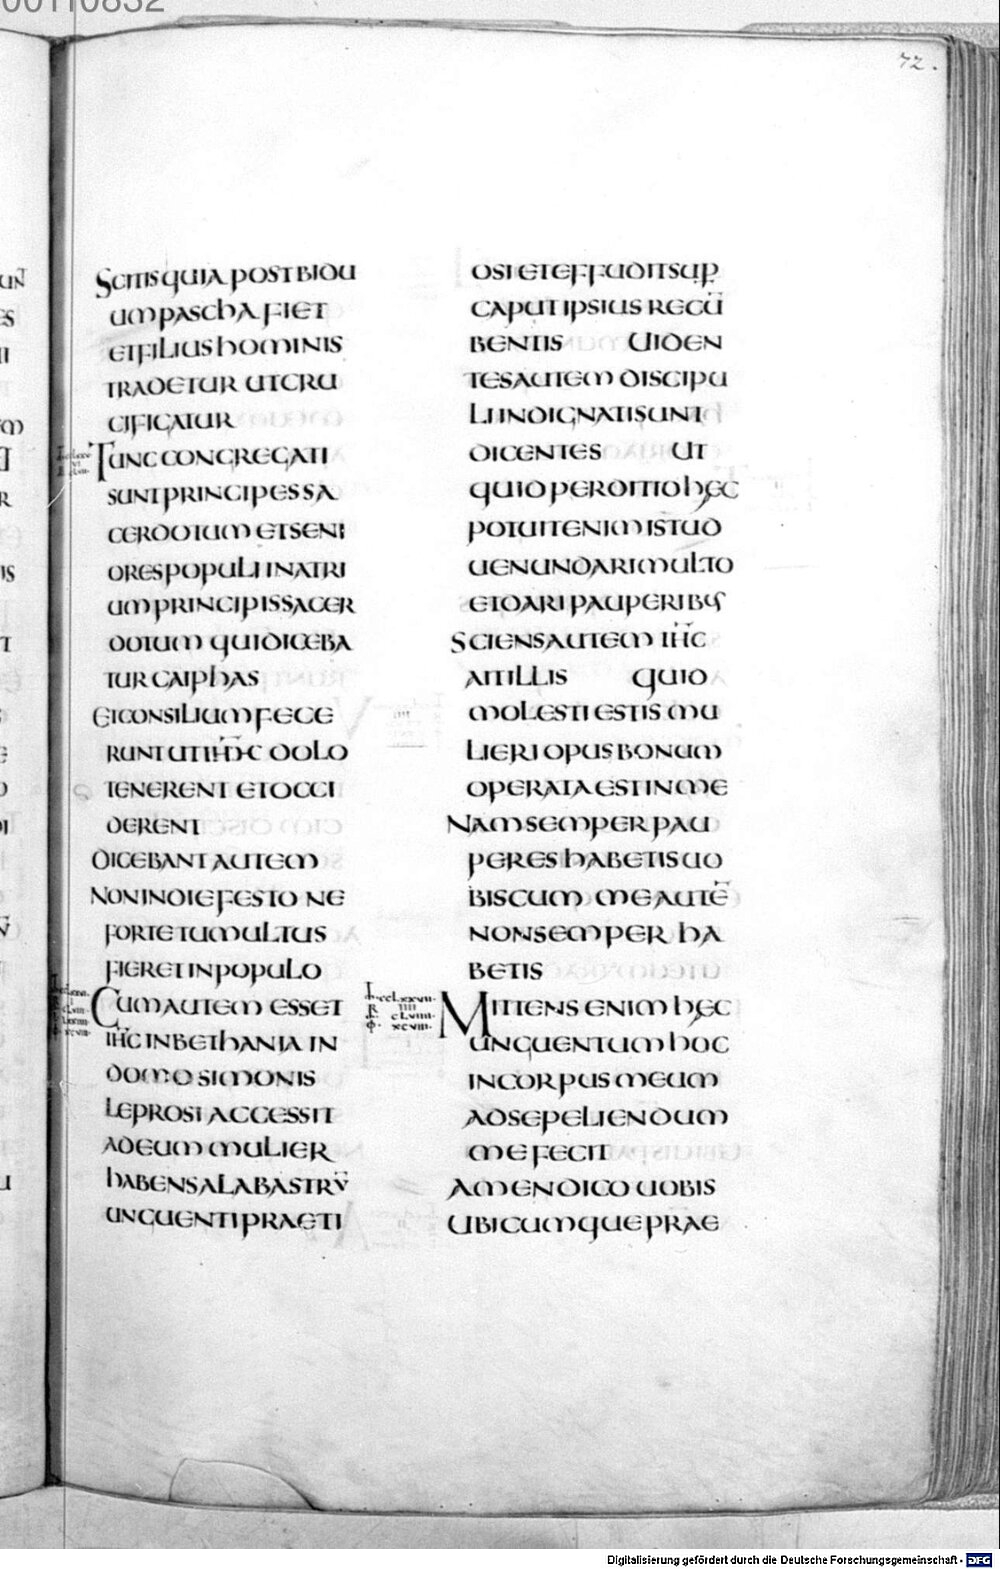 00110832
72.
SCITIS QUIA POST BIDU
UM PASCHA FIET
ET FILIUS HOMINIS
TRADETUR UT CRU
CIFIGATUR
TUNC CONGREGATI
SUNT PRINCIPES SA
CERDOTUM ET SENI
ORES POPULI IN ATRI
UM PRINCIPIS SACER
DOTUM QUI DICEBA
TUR CAIPHAS
ET CONSILIUM FECE
RUNT UT IHC DOLO
TENERENT ET OCCI
DERENT
DICEBANT AUTEM
NON IN DIE FESTO NE
FORTE TUMULTUS
FIERET IN POPULO
CUM AUTEM ESSET
IHC IN BETHANIA IN
DOMO SIMONIS
LEPROSI ACCESSIT
AD EUM MULIER
HABENS ALABASTRŪ
UNGUENTI PRAETI
OSI ET EFFUDIT SUP
CAPUT IPSIUS RECŪ
BENTIS UIDEN
TES AUTEM DISCIPU
LI INDIGNATI SUNT
DICENTES UT
QUID PERDITIO HEC
POTUIT ENIM ISTUD
UENUNDARI MULTO
ET DARI PAUPERIBUS
SCIENS AUTEM IHC
AIT ILLIS QUID
MOLESTI ESTIS MU
LIERI OPUS BONUM
OPERATA EST IN ME
NAM SEMPER PAU
PERES HABETIS UO
BISCUM ME AUTĒ
NON SEMPER HA
BETIS
MITTENS ENIM HEC
UNGUENTUM HOC
IN CORPUS MEUM
AD SEPELIENDUM
ME FECIT
AMEN DICO UOBIS
UBICUMQUE PRAE
Digitalisierung gefördert durch die Deutsche Forschungsgemeinschaft - DFG